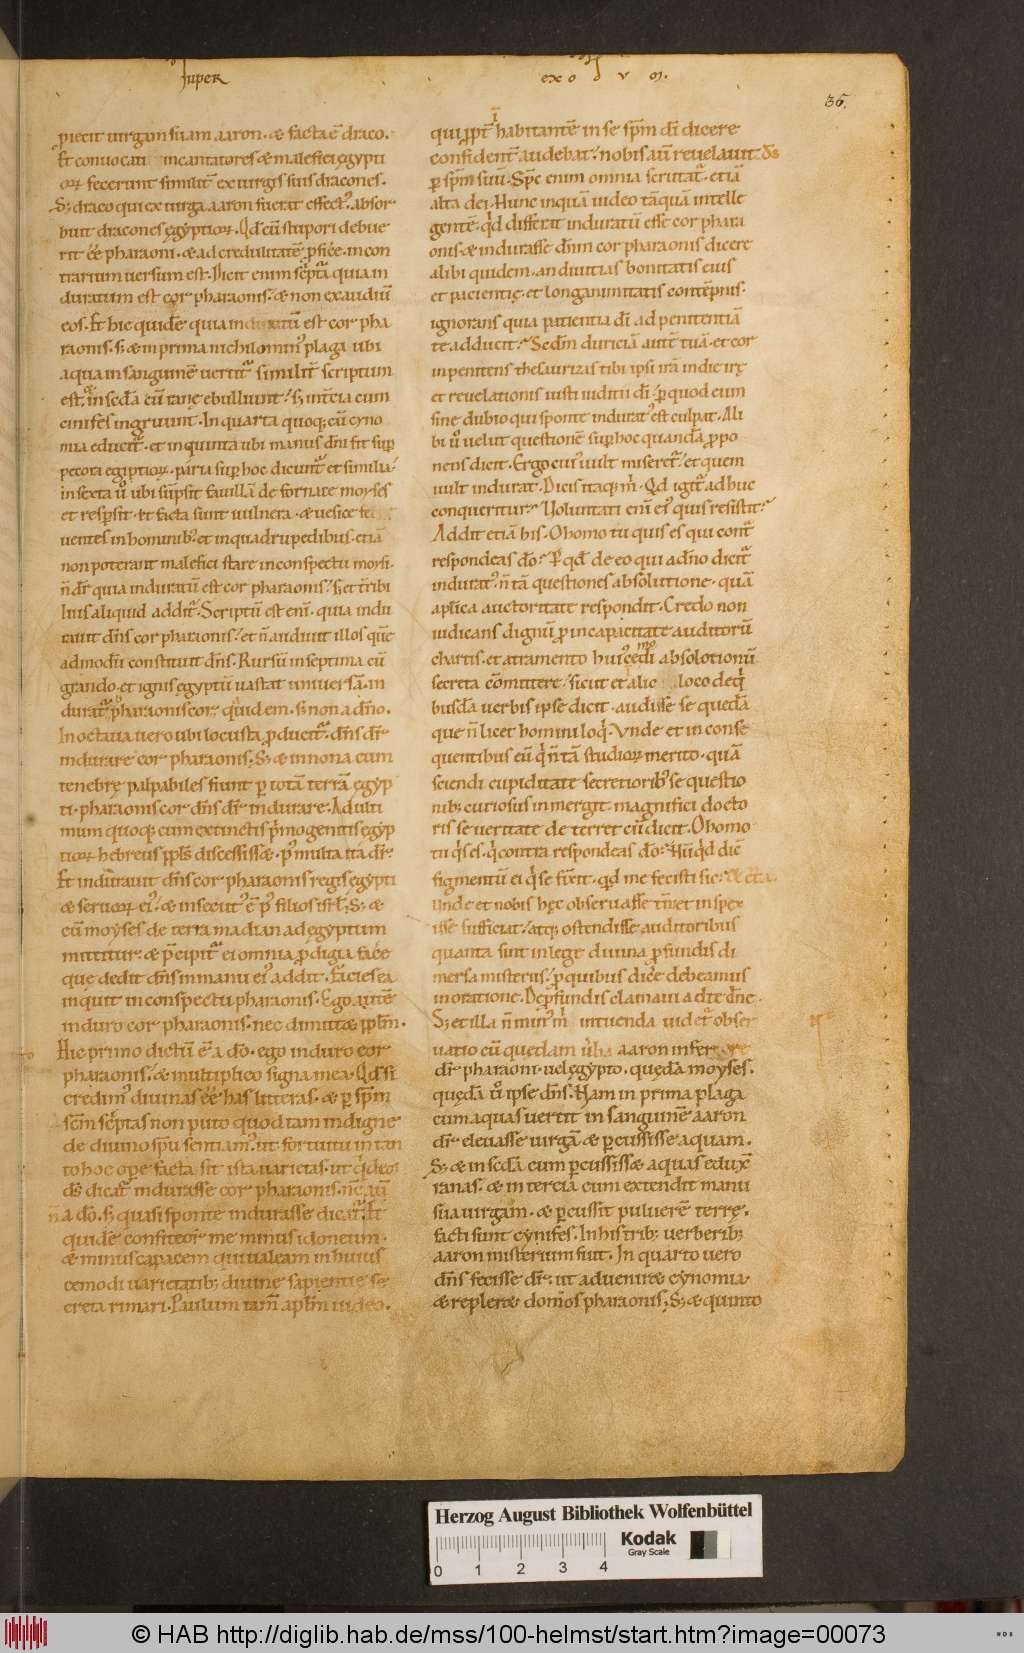 super
exodum.
36.
ꝓiecit uirgam suam aaron. & facta ē draco.
Et conuocati incantatores & malefici egypti
oꝝ fecerunt similit̄ ex uirgis suis dracones.
S; draco qui ex uirga aaron fuerat effect᷒. absor
buit dracones egyptioꝝ. Qd̄ cū stupori debue
rit ēē pharaoni. & ad credulitatē ꝓficē. in con
trarium uersum est. Dicit enim sc̄pt̄a quia in
duratum est cor pharaonis. & non exaudiuī
eos. Et hic quidē quia induratū est cor pha
raonis. s; & in prima nichilomin᷒ plaga ubi
aqua in sanguinē uertit᷑ similit̄ scriptum
est. in sc̄da cū ranę ebulliunt. s; in t̄cia cum
cinifes ingruunt. In quarta quoq; cū cyno
mia educit᷑. et in quinta ubi manus dn̄i fit suꝑ
pecora egiptioꝝ. paria suꝑ hoc dicunt᷑ et similia.
in sexta ů ubi sūpsit fauillā de fornace moyses
et resꝑsit. et facta sunt uulnera. & uesice
uentes in hominib᷒. et in quadrupedibus. etiā
non poterant malefici stare in conspectu moysi.
n̄ dr̄ quia induratū est cor pharaonis. s; et t̄ribi
lius aliquid addit᷑. Scriptū est eni̅. quia indu
rauit dn̄s cor pharaonis. et n̄ audiuit illos quē
admodū constituit dn̄s. Rursū in septima cū
grando. et ignis egyptū uastat uniuersā. in
durat᷑ pharaonis cor quidem. s; non a dn̄o.
In octaua uero ubi locusta ꝓducit᷑. dn̄s dr̄
indurare cor pharaonis. S; & in nona cum
tenebrę palpabiles fiunt ꝑ totā terrā egyp
ti. pharaonis cor dn̄s dr̄ indurare. Ad ulti
mum quoq; cum extinctis pͥmogenitis egyp
tioꝝ hebreus ppl̄s discessiss&. p᷒ multa ita dr̄.
Et indurauit dn̄s cor pharaonis regis egypti
& seruoꝝ ei᷒. & insecut᷒ ē p᷒ filios isrl̄. S; &
cū moyses de terra madian ad egyptum
mittitur. & p̄cipit᷑ ei omnia ꝓdigia facē
quę dedit dn̄s in manu ei᷒. addit. facies ea
inquit in conspectu pharaonis. Ego autē
induro cor pharaonis. nec dimitt& ppl̄m.
Hic primo dictū ē a dō. ego induro cor
pharaonis. & multiplico signa mea. Qd̄ si
credim᷒ diuinas ēē has litteras. & ꝑ spm̄
sc̄m sc̄ptas non puto quod tam indigne
de diuino spū sentiam᷒. ut fortuitu in tan
to hoc opere facta sit ista uarietas. ut qͥdeo
ds̄ dicat᷑ indurasse cor pharaonis. nc̄ aū
n̄ a dō. s; quasi sponte indurasse dicat᷑. Et
quidē confiteor me minus idoneum.
& minus capacem qui ualeam in huius
cemodi uarietatib; diuine sapientie se
creta rimari. Paulum tam̄ aplm̄ uideo.
qui ꝓpt̄ habitantē in se spm̄ dī dicere
confident̄ audebat. nobis aū reuelauit ds̄
ꝑ spm̄ suū. Spc̄ enim omnia scrutat᷑. etiā
alta dei. Hunc inquā uideo tāquā intelle
gentē. qͥd differat induratū esse cor phara
onis. & indurasse dn̄m cor pharaonis dicere
alibi quidem. an diuitias bonitatis eius
et pacientię. et longanimitatis contēpnis.
ignorans quia patientia dī ad penitentiā
te adducit. Sc̄dm duriciā autē tuā. et cor
inpenitens thesaurizas tibi ipsi irā in die irę
et reuelationis iusti iuditii dī. ꝑ quod eum
sine dubio qui sponte indurat᷒ est culpat. Ali
bi ů uelut questionē suꝑ hoc quandā ꝓpo
nens dicit. Ergo cui᷒ uult miseret᷑. et quem
uult indurat. Dicis itaq; m̄. Qd̄ igit᷑ adhuc
conqueritur. Uoluntati eni̅ ei᷒ quis resistit.
Addit etiā his. O homo tu quis es qui cont̄
respondeas dō. Ꝑ qd̄ de eo qui a dn̄o dicit᷑
indurat᷒. n̄ tā questiones absolutione. quā
aplica auctoritate respondit. Credo non
iudicans dignū ꝓ incapacitate auditorū
chartis. et atramento hui᷒cemodi absolotionū
secreta cōmittere. sicut et alio loco de qͥ
busdā uerbis ipse dicit. audisse se quedā
que n̄ licet homini loqͥ. Unde et in conse
quentibus eū qͥ n̄ tā studioꝝ merito. quā
sciendi cupiditate secretiorib᷒ se questio
nib; curiosius inmergit. magnifici docto
ris se ueritate deterret cū dicit. O homo
tu qͥs es. qͥ contra respondeas dō. Nū qͥd dic̄
figmentū ei qͥ se finxit. qͥd me fecisti sic. & cetā.
Unde et nobis hęc obseruasse tm̄ et inspex
isse sufficiat. atq; ostendisse auditoribus
quanta sint in lege diuina ꝓfundis di
mersa misteriis. ꝓ quibus dicē debeamus
in oratione. De ꝓfundis clamaui ad te dn̄e.
S; et illa n̄ min᷒ m̄ intuenda uidet᷑ obser
uatio cū quedam aaron infer
dr̄ pharaoni. uel egypto. quędā moyses.
quędā ů ipse dn̄s. Nam in prima plaga
cum aquas uertit in sanguinē aaron
dr̄ eleuasse uirgā & ꝑcussisse aquam.
S; & in sc̄da cum ꝑcussiss& aquas eduxē
ranas. & in tercia cum extendit manu
sua uirgam. & ꝑcussit puluerē terrę.
facti sunt cynifes. In his trib; uerberib;
aaron misterium fuit. In quarto uero
dn̄s fecisse dr̄. ut adueniret cynomia.
& replere domos pharaonis. S; & quinto
Herzog August Bibliothek Wolfenbüttel
0 1 2 3 4
Kodak
Gray Scale
© HAB http://diglib.hab.de/mss/100-helmst/start.htm?image=00073